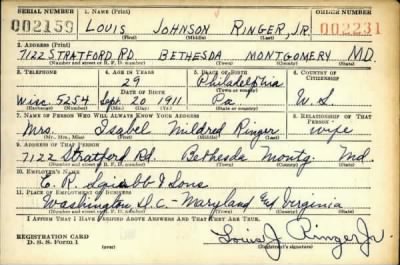 SERIAL NUMBER 1. NAME (Print) ORDER NUMBER
002159 LOUIS JOHNSON RINGER, JR. 002231
(First) (Middle) (Last)
2. ADDRESS (Print)
7122 STRATFORD RD. BETHESDA MONTGOMERY MD.
(Number and street or R. F. D. number) (Town) (County) (State)
3. TELEPHONE 4. AGE IN YEARS 5. PLACE OF BIRTH 6. COUNTRY OF CITIZENSHIP
29 Philadelphia
DATE OF BIRTH (Town or county)
Wisc. 5254 Sept. 20 1911 Pa. U.S.
(Mo.) (Day) (Yr.) (State or country)
7. NAME OF PERSON WHO WILL ALWAYS KNOW YOUR ADDRESS 8. RELATIONSHIP OF THAT PERSON
Mrs. Isabel Mildred Ringer wife
(Mr., Mrs., Miss) (First) (Middle) (Last)
9. ADDRESS OF THAT PERSON
7122 Stratford Rd. Bethesda Montg. Md.
(Number and street or R. F. D. number) (Town) (County) (State)
10. EMPLOYER'S NAME
E. R. Squibb & Sons
11. PLACE OF EMPLOYMENT OR BUSINESS
Washington D.C. - Maryland Virginia
(Number and street or R. F. D. number) (Town) (County) (State)
I AFFIRM THAT I HAVE VERIFIED ABOVE ANSWERS AND THAT THEY ARE TRUE.
REGISTRATION CARD
D. S. S. Form 1
Louis J. Ringer Jr.
(Registrant's signature)